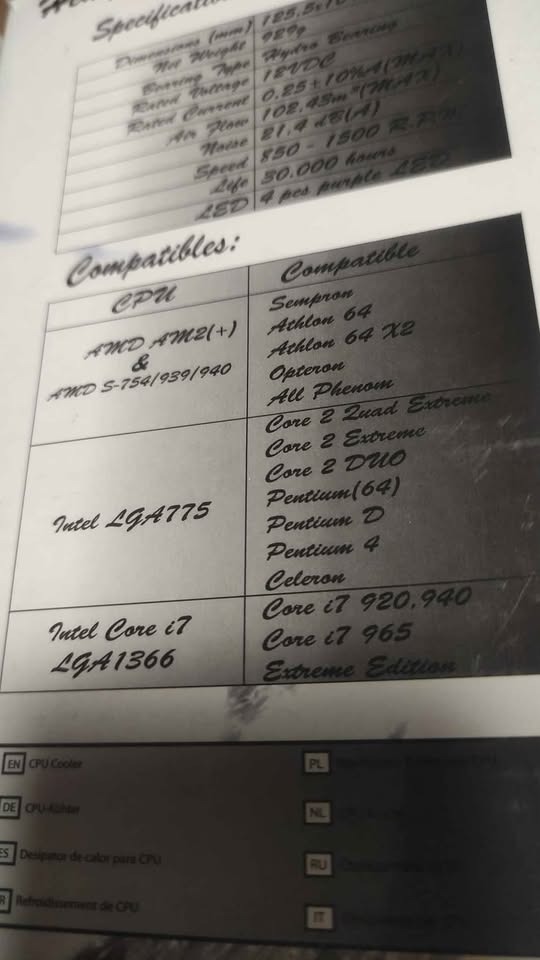 Specification
Dimensions (mm) 125.5x10
Net Weight 929g
Bearing Type Hydro Bearing
Rated Voltage 12VDC
Rated Current 0.25+10%A(MAX)
Air Flow 102.43m³(MAX)
Noise 21.4 dB(A)
Speed 850 - 1500 R.P.M
Life 30.000 hours
LED 4 pcs purple LED
Compatibles:
CPU Compatible
AMD AM2(+)
&
AMD S-754/939/940
Sempron
Athlon 64
Athlon 64 X2
Opteron
All Phenom
Intel LGA775
Core 2 Quad Extreme
Core 2 Extreme
Core 2 DUO
Pentium(64)
Pentium D
Pentium 4
Celeron
Intel Core i7
LGA1366
Core i7 920,940
Core i7 965
Extreme Edition
EN CPU Cooler
DE CPU-Kühler
ES Desipator de calor para CPU
R Refroidissement de CPU
PL
NL
RU
IT